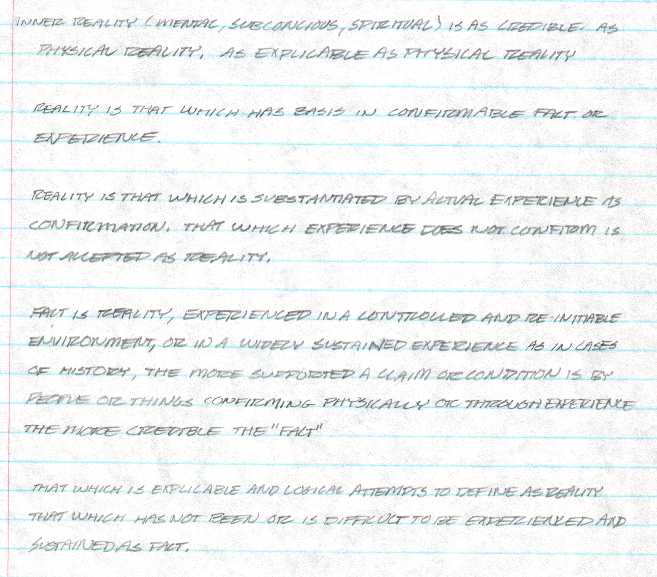 INNER REALITY (MENTAL, SUBCONCIOUS, SPIRITUAL) IS AS CREDIBLE. AS
PHYSICAL REALITY. AS EXPLICABLE AS PHYSICAL REALITY
REALITY IS THAT WHICH HAS BASIS IN CONFIRMABLE FACT OR
EXPERIENCE.
REALITY IS THAT WHICH IS SUBSTANTIATED BY ACTUAL EXPERIENCE AS
CONFIRMATION. THAT WHICH EXPERIENCE DOES NOT CONFIRM IS
NOT ACCEPTED AS REALITY.
FACT IS REALITY, EXPERIENCED IN A CONTROLLED AND RE-INITIABLE
ENVIRONMENT, OR IN A WIDELY SUSTAINED EXPERIENCE AS IN CASES
OF HISTORY, THE MORE SUPPORTED A CLAIM OR CONDITION IS BY
PEOPLE OR THINGS CONFIRMING PHYSICALLY OR THROUGH EXPERIENCE
THE MORE CREDIBLE THE "FACT"
THAT WHICH IS EXPLICABLE AND LOGICAL ATTEMPTS TO DEFINE AS REALITY
THAT WHICH HAS NOT BEEN OR IS DIFFICULT TO BE EXPERIENCED AND
SUSTAINED AS FACT.